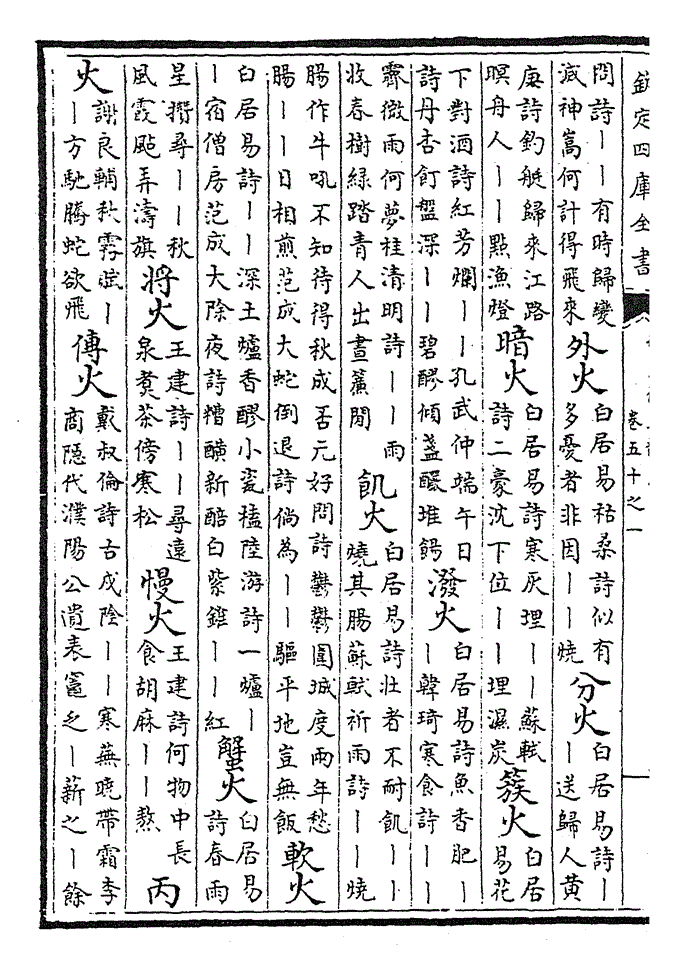 欽定四庫全書
卷五十之一
問詩丨丨有時歸變
滅神嵩何計得飛來
外火
白居易枯桑詩似有
多憂者非因丨丨燒
分火
白居易詩丨
丨送歸人黃
庚詩釣艇歸來江路
暝舟人丨丨點漁燈
暗火
白居易詩寒灰埋丨丨蘇軾
詩二豪沈下位丨丨埋濕炭
簇火
白居
易花
下對酒詩紅芳爛丨丨孔武仲端午日
詩丹杏飣盤深丨丨碧醪傾盞釅堆餳
潑火
白居易詩魚香肥丨
丨韓琦寒食詩丨丨
霽微雨何夢桂清明詩丨丨雨
收春樹綠踏青人出晝簾閒
飢火
白居易詩壯者不耐飢丨丨
燒其腸蘇軾祈雨詩丨丨燒
腸作牛吼不知待得秋成否元好問詩鬱鬱圍城度兩年愁
腸丨丨日相煎范成大蛇倒退詩倘為丨丨驅平地豈無飯
軟火
白居易詩丨丨深土爐香醪小瓷榼陸游詩一爐丨
丨宿僧房范成大除夜詩糟醺新醅白紫錐丨丨紅
蟹火
白居易
詩春雨
星攢尋丨丨秋
風霞颭弄濤旗
將火
王建詩丨丨尋遠
泉煑茶傍寒松
慢火
王建詩何物中長
食胡麻丨丨熬
丙
火
謝良輔秋霧賦丨
丨方馳騰蛇欲飛
傳火
戴叔倫詩古戍陰丨丨寒蕪曉帶霜李
商隱代濮陽公遺表竈之丨薪之丨餘